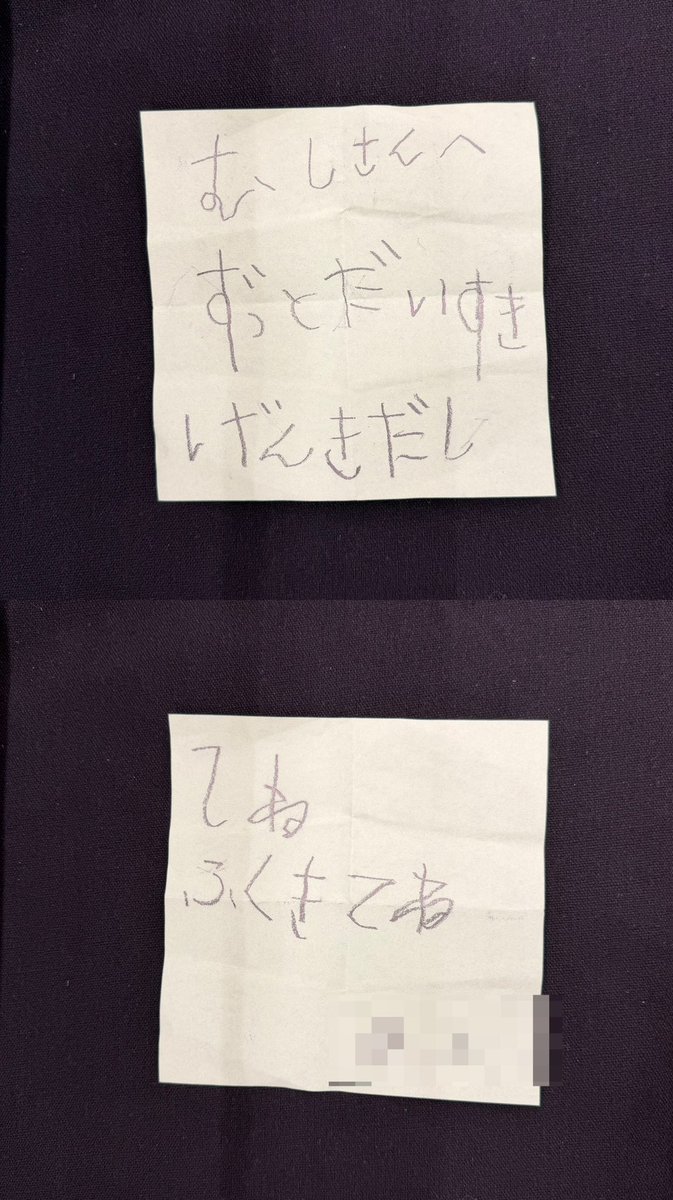 むしさんへ
ずっとだいすき
げんきだし
てね
ふくきてね